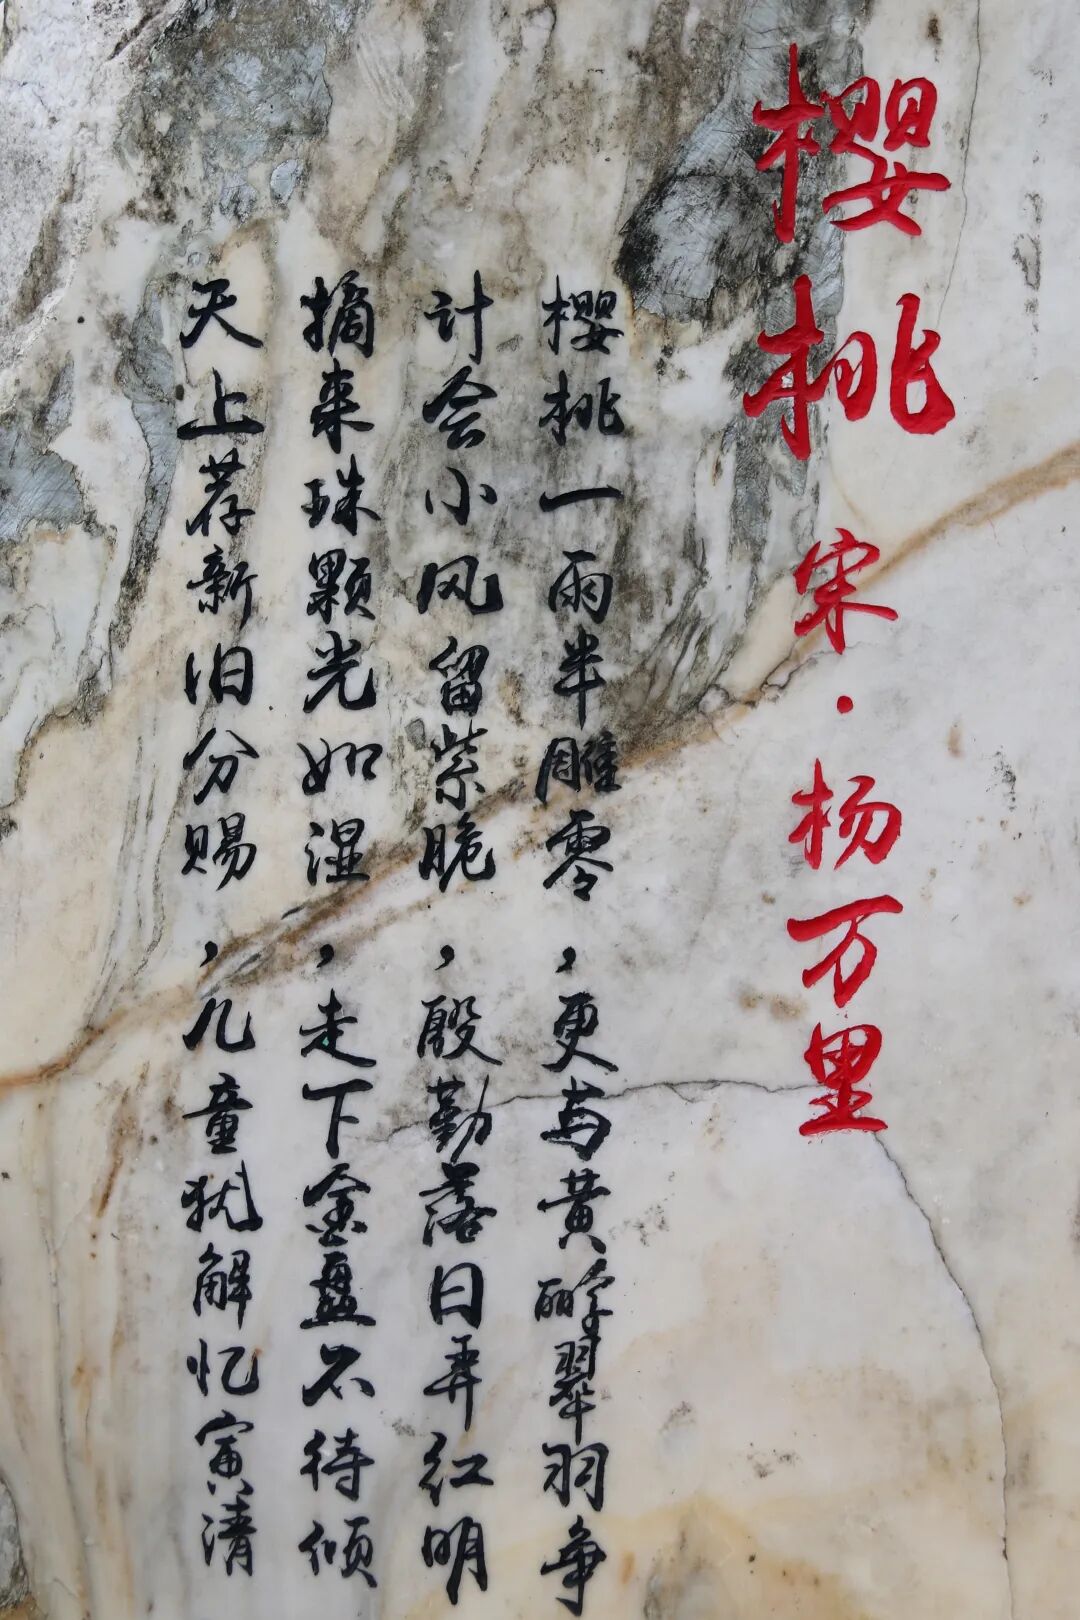 樱桃 宋·杨万里
樱桃一雨半雕零，更与黄鹂翠羽争
计会小风留紫脆，殷勤落日弄红明
摘来珠颗光如湿，走下金盘不待倾
天上荐新旧分赐，儿童犹解忆寅清